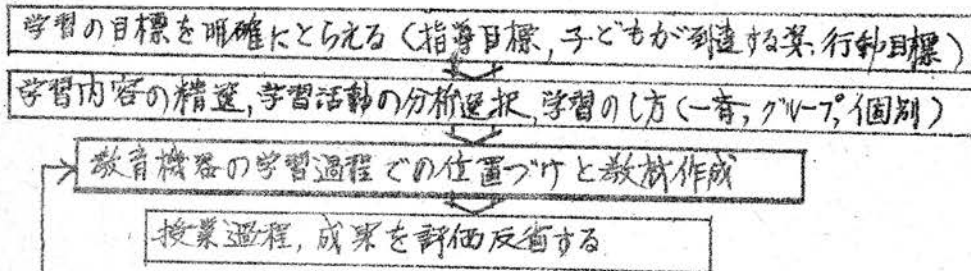 学習の目標を明確にとらえる(指導目標,子どもが到達する姿、行動目標)
学習内容の精選,学習活動の分析選択,学習のし方(一斉,グループ,個別)
教育機器の学習過程での位置づけと教材作成
授業過程,成果を評価反省する